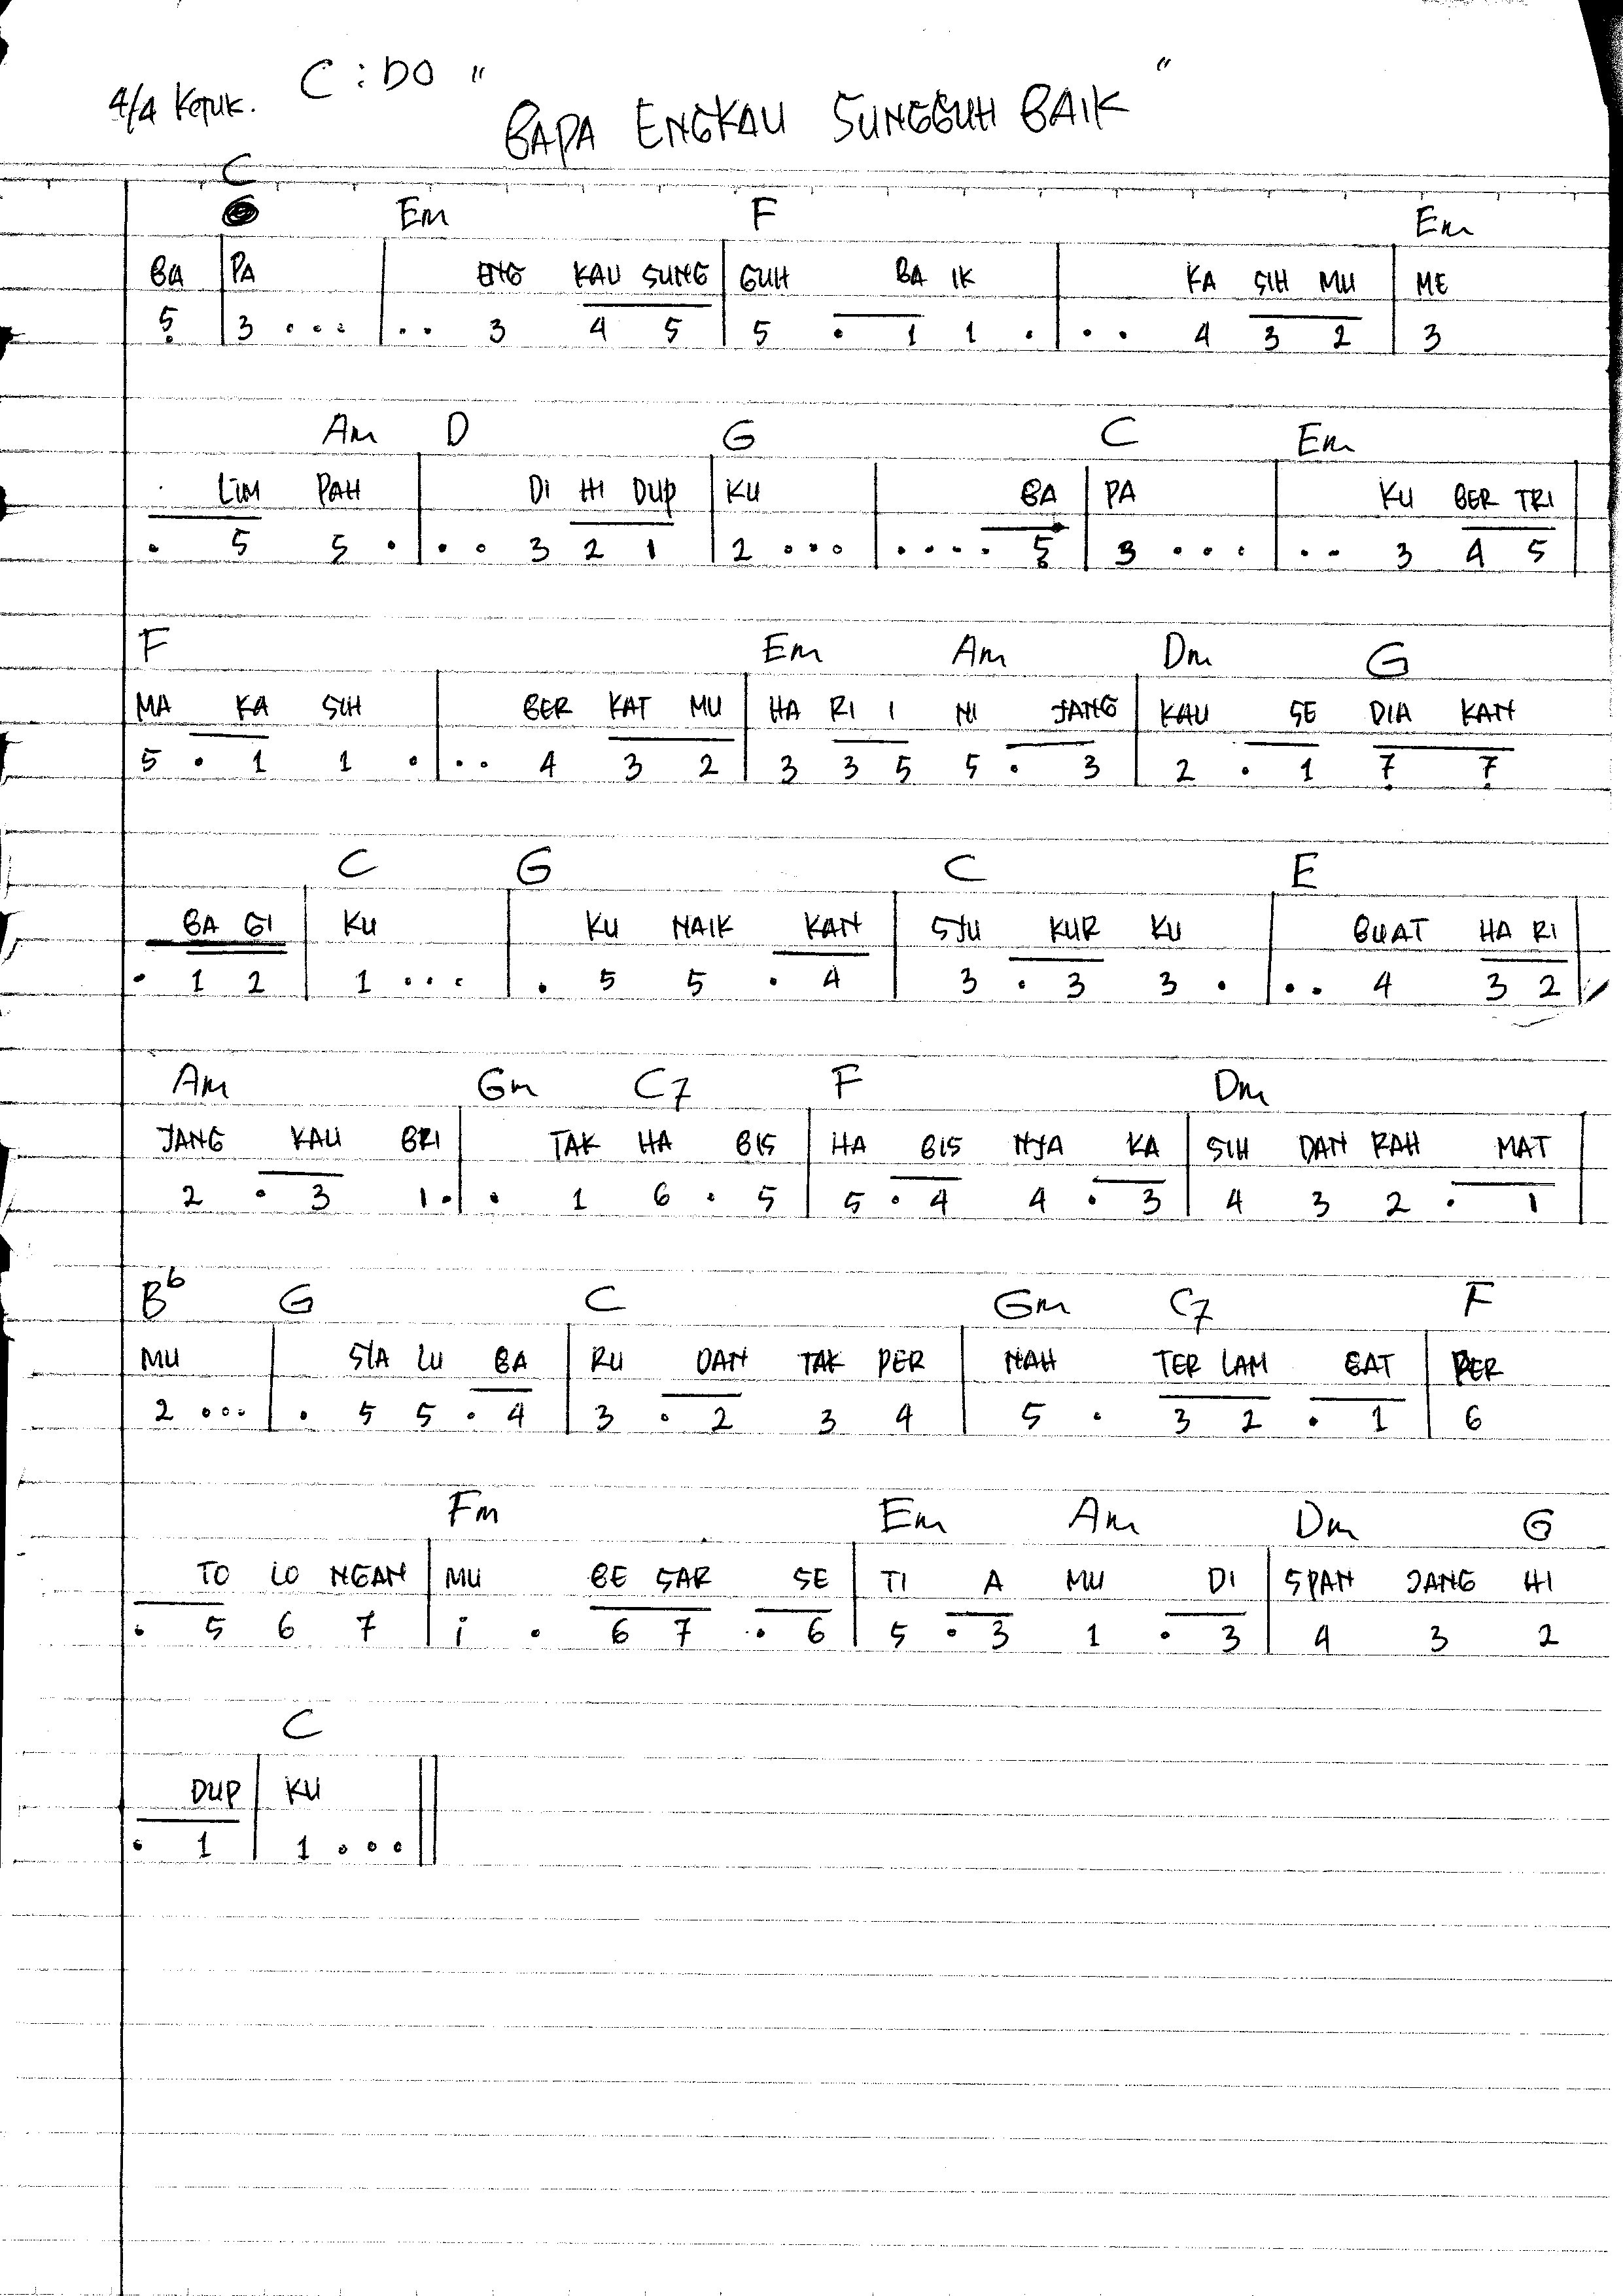 4/4 Ketuk. C : DO "
BAPA ENGKAU SUNGGUH BAIK "
C
Em F Em
BA | PA | ENG KAU SUNG | GUH BA IK | KA SIH MU | ME
5̣ | 3 . . . | . . 3 4 5 | 5 . 1 1 . | . . 4 3 2 | 3
Am D G C Em
LIM PAH | DI HI DUP | KU | BA | PA | KU BER TRI |
. 5 5 . | . . 3 2 1 | 2 . . . | . . . . 5̣ | 3 . . . | . . 3 4 5 |
F Em Am Dm G
MA KA SIH | BER KAT MU | HA RI I NI JANG | KAU SE DIA KAN
5 . 1 1 . | . . 4 3 2 | 3 3 5 5 . 3 | 2 . 1 7̣ 7̣
C G C E
BA GI | KU | KU NAIK KAN | SJU KUR KU | BUAT HA RI |
. 1 2 | 1 . . . | . 5 5 . 4 | 3 . 3 3 . | . . 4 3 2 |
Am Gm C7 F Dm
JANG KAU BRI | TAK HA BIS | HA BIS NJA KA | SIH DAN RAH MAT |
2 . 3 1 . | . 1 6 . 5 | 5 . 4 4 . 3 | 4 3 2 . 1 |
Bb G C Gm C7 F
MU | S'LA LU BA | RU DAN TAK PER | NAH TER LAM BAT | PER
2 . . . | . 5 5 . 4 | 3 . 2 3 4 | 5 . 3 2 . 1 | 6
Fm Em Am Dm G
TO LO NGAN | MU BE SAR SE | TI A MU DI | SPAN JANG HI
. 5 6 7 | i . 6 7 . 6 | 5 . 3 1 . 3 | 4 3 2
C
DUP | KU ||
. 1 | 1 . . . ||